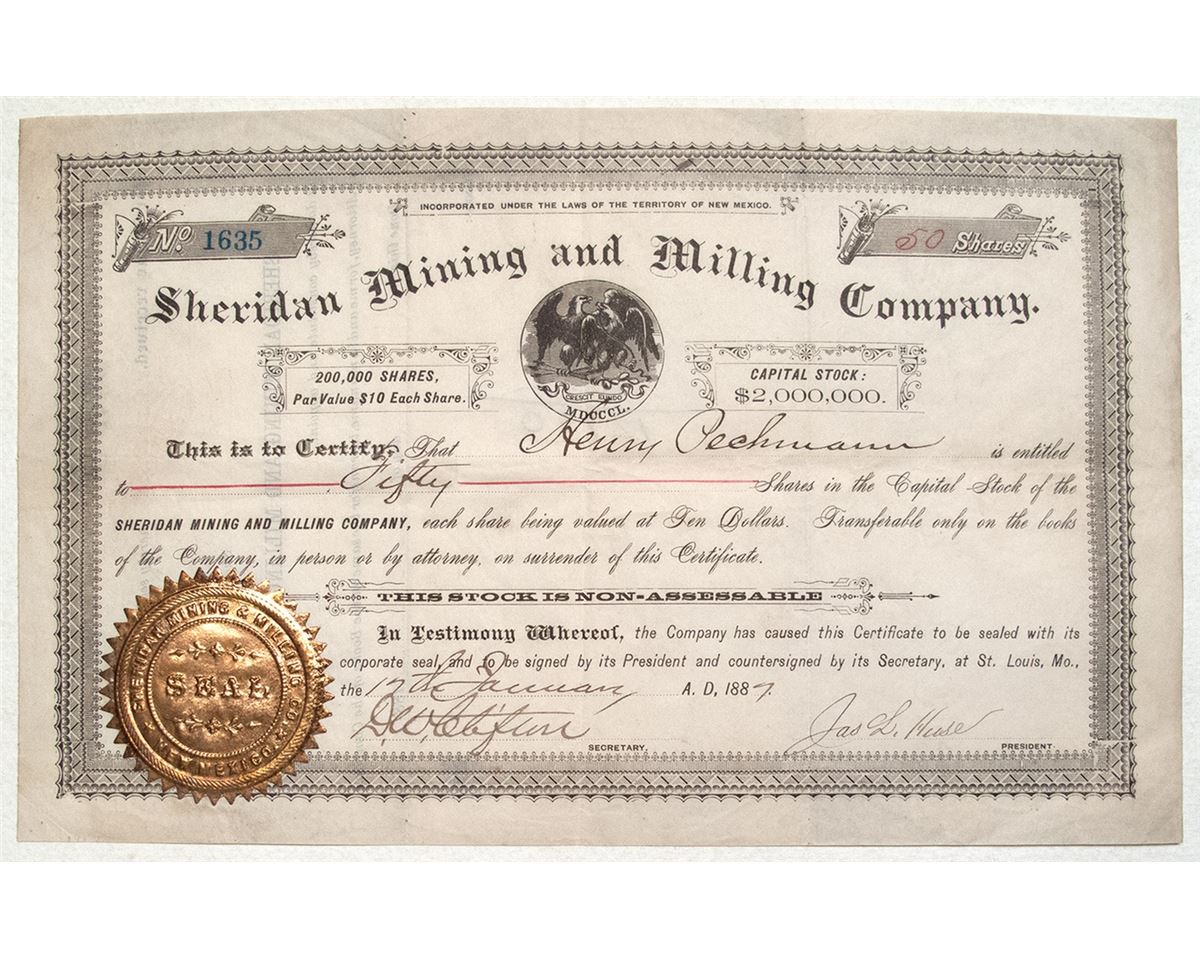 INCORPORATED UNDER THE LAWS OF THE TERRITORY OF NEW MEXICO.
No. 1635
50 Shares
Sheridan Mining and Milling Company.
200,000 SHARES,
Par Value $10 Each Share.
CRESCIT EUNDO
MDCCCL.
CAPITAL STOCK:
$2,000,000.
This is to Certify, That Henry Pechmann is entitled
to Fifty Shares in the Capital Stock of the
SHERIDAN MINING AND MILLING COMPANY, each share being valued at Ten Dollars. Transferable only on the books
of the Company, in person or by attorney, on surrender of this Certificate.
THIS STOCK IS NON-ASSESSABLE
In Testimony Whereof, the Company has caused this Certificate to be sealed with its
corporate seal, and to be signed by its President and countersigned by its Secretary, at St. Louis, Mo.,
the 17th January A. D, 1887.
SHERIDAN MINING & MILLING CO.
SEAL
NEW MEXICO.
D.W. Clifton SECRETARY,
Jas L. Huse PRESIDENT